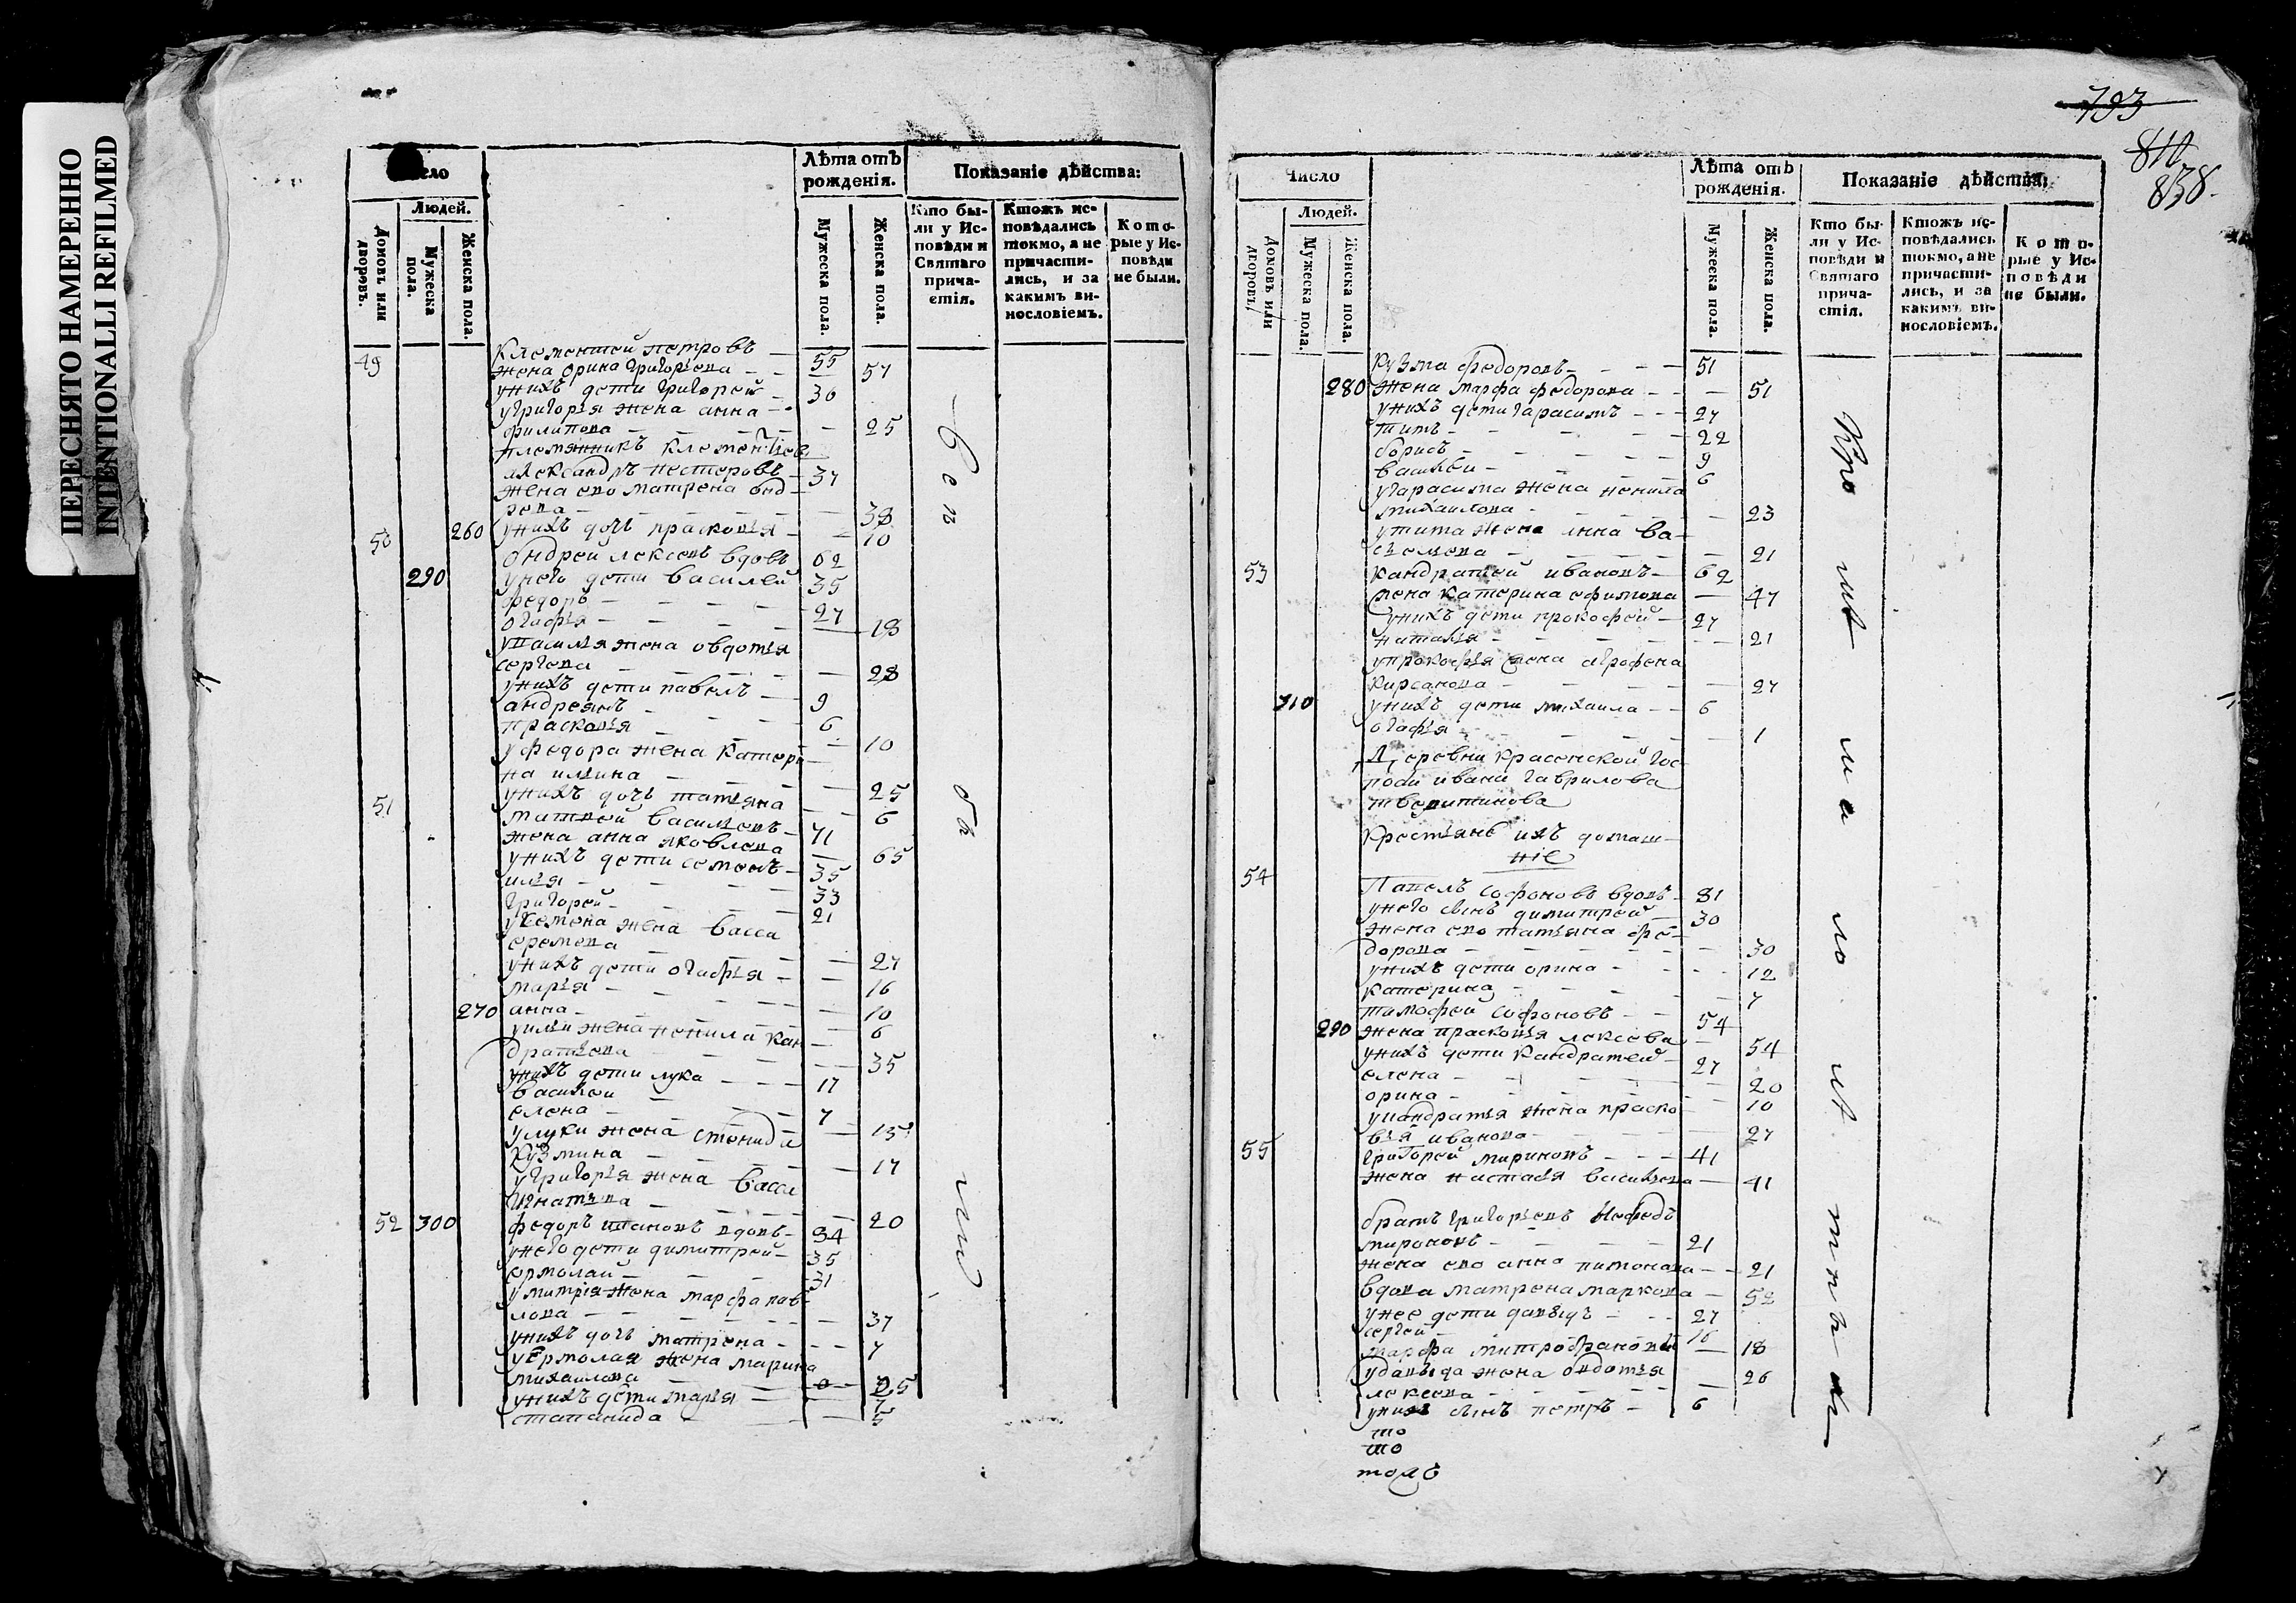 ПЕРЕСНЯТО НАМЕРЕННО
INTENTIONALLI REFILMED
Лѣта отъ рожденія.
Показаніе дѣйства:
Людей.
Домовъ или дворовъ.
Мужеска пола.
Женска пола.
Мужеска пола.
Женска пола.
Кто бы-
ли у Ис-
повѣди и
Святаго
прича-
стія.
Ктожъ ис-
повѣдались
токмо, а не
причасти-
лись, и за
какимъ ви-
нословіемъ.
Кото-
рые у Ис-
повѣди
не были.
49 Клементей петровъ — 55
жена орина григорьева — — 57
унихъ дети григорей — 30
угригорья жена анна —
филипова — — 25
племянникъ клементиев
александръ нестеровъ — 37
жена ево матрена онд
рева — — 38
260 унихъ дочь прасковья — — 10
50 ондрей лексевъ вдовъ 62
290 унего дети василей 35
федоръ — 27
огафья — — 18
увасилья жена овдотья
сергева — — 28
унихъ дети павелъ — 9
андреянъ — 6
прасковья — — 10
уфедора жена катери
на илина — — 25
унихъ дочь татьяна — 6
51 матвей васильевъ — 71
жена анна яковлева — 65
унихъ дети семенъ — 35
илья — 33
григорей — 21
усемена жена васса
еремева — — 27
унихъ дети огафья — — 16
марья — — 10
270 анна — — 6
уильи жена ненила кан
дратьева — — 35
унихъ дети лука — 17
василей — 7
елена — — 15
улуки жена степанида
кузмина — — 17
угригорья жена васса
игнатьева — — 20
52 300 федоръ ивановъ вдовъ — 84
унего дети димитрей — 35
ермолай — 31
умитрія жена марфа пав
лова — — 37
унихъ дочь матрена — — 7
уермолая жена марина
михаилова — 25
унихъ дети марья — 7
степанида — — 5
793
810
838.
Число
Лѣта отъ рожденія.
Показаніе дѣйствія:
Людей.
Домовъ или дворовъ.
Мужеска пола.
Женска пола.
Мужеска пола.
Женска пола.
Кто бы-
ли у Ис-
повѣди и
Святаго
прича-
стія.
Ктожъ ис-
повѣдались
токмо, а не
причасти-
лись, и за
какимъ ви-
нословіемъ.
Кото-
рые у Ис-
повѣди
не были.
кузма федоровъ — 51
280 жена марфа федорова — — 51
унихъ дети гарасимъ — 27
титъ — 22
борисъ — 9
василей — 6
угарасима жена ненила
михаилова — — 23
утита жена анна ва
сильева — — 21
53 кандратей ивановъ — 62
жена катерина ефимова — 47
унихъ дети прокофей — 27
наталья — — 21
упрокофья жена агрофена
кирсанова — — 27
310 унихъ дети михаила — 6
огафья — — 1
Деревни красенской гос
поди ивана гаврилова
тверитинова
крестьяне ихъ домаш
ніе
54 Павелъ софоновъ вдовъ — 81
унего сынъ димитрей — 30
жена ево татьяна фе
дорова — — 30
унихъ дети орина — — 12
катерина — — 7
тимофей софоновъ — 54
290 жена прасковья лексева — 54
унихъ дети кандратей — 27
елена — — 20
орина — — 10
укандратья жена праско
вья иванова — — 27
55 григорей мироновъ — 41
жена настасья васильева — 41
братъ григорьевъ нефедъ
мироновъ — 21
жена ево анна — 21
вдова матрена маркова — 52
унее дети давыдъ — 27
сергей — 16
марфа митрофанова — 18
удавыда жена овдотья
лексева — 26
унихъ сынъ петръ — 6
то
то
толъ